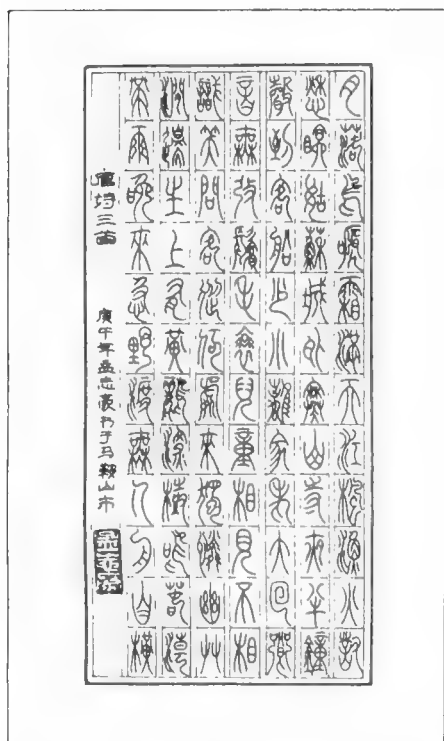 月落烏啼霜滿天江楓漁火對
愁眠姑蘇城外寒山寺夜半鐘
聲到客船少小離家老大回鄉
音無改鬢毛衰兒童相見不相
識笑問客從何處來獨憐幽艸
澗邊生上有黃鸝深樹鳴春潮
帶雨晚來急野渡無人舟自橫
唐詩三首
庚午年孟志豪书于马鞍山市